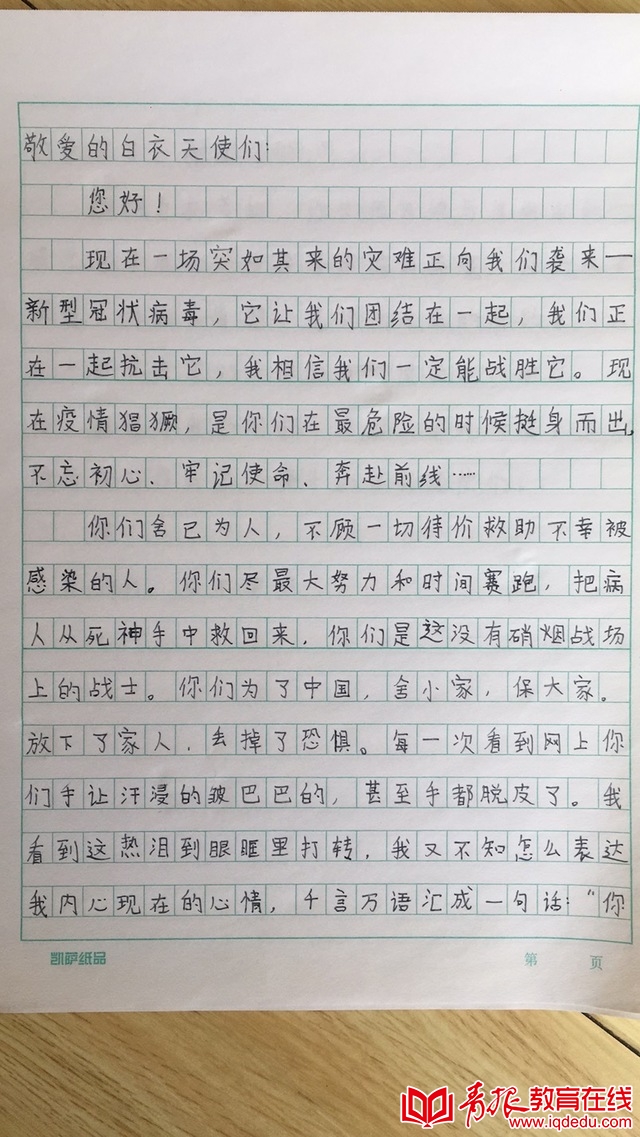 敬爱的白衣天使们：
您好！
现在一场突如其来的灾难正向我们袭来一
新型冠状病毒，它让我们团结在一起，我们正
在一起抗击它，我相信我们一定能战胜它。现
在疫情猖獗，是你们在最危险的时候挺身而出，
不忘初心、牢记使命、奔赴前线……
你们舍己为人，不顾一切待价救助不幸被
感染的人。你们尽最大努力和时间赛跑，把病
人从死神手中救回来，你们是这没有硝烟战场
上的战士。你们为了中国，舍小家，保大家。
放下了家人，去掉了恐惧。每一次看到网上你
们手让汗浸的皱巴巴的，甚至手都脱皮了。我
看到这热泪到眼眶里打转，我又不知怎么表达
我内心现在的心情，千言万语汇成一句话：“你
凯萨纸品 第 页
青报教育在线
www.iqdedu.com